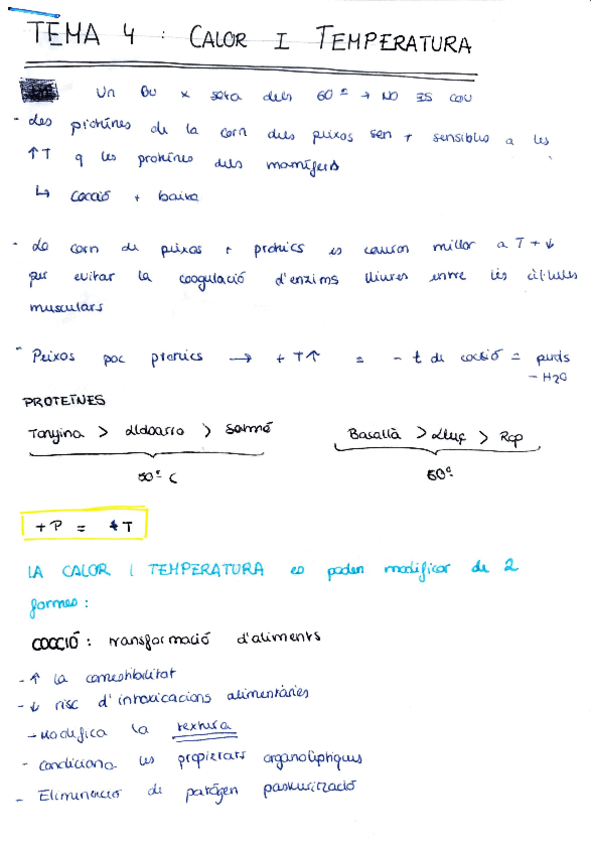 TEMA 4 : CALOR I TEMPERATURA
Un Ou x sota dels 60º → NO ES COU
- Les proteïnes de la carn dels peixos són + sensibles a les
↑T q les proteïnes dels mamífers
↳ Cocció + baixa
- La carn de peixos + proteics es couran millor a T + ↓
per evitar la coagulació d'enzims lliures entre les cèl·lules
musculars
- Peixos poc proteics → + T↑ = - t de cocció = perds
- H2O
PROTEÏNES
Tonyina > > salmó
50º C
> Lluç > Rap
60º
+ P = T
LA CALOR I TEMPERATURA es poden modificar de 2
formes :
COCCIÓ : transformació d'aliments
- ↑ la comestibilitat
- ↓ risc d'intoxicacions alimentàries
- Modifica la textura
- Condiciona les propietats organolèptiques
- Eliminació de patògen pasteurització